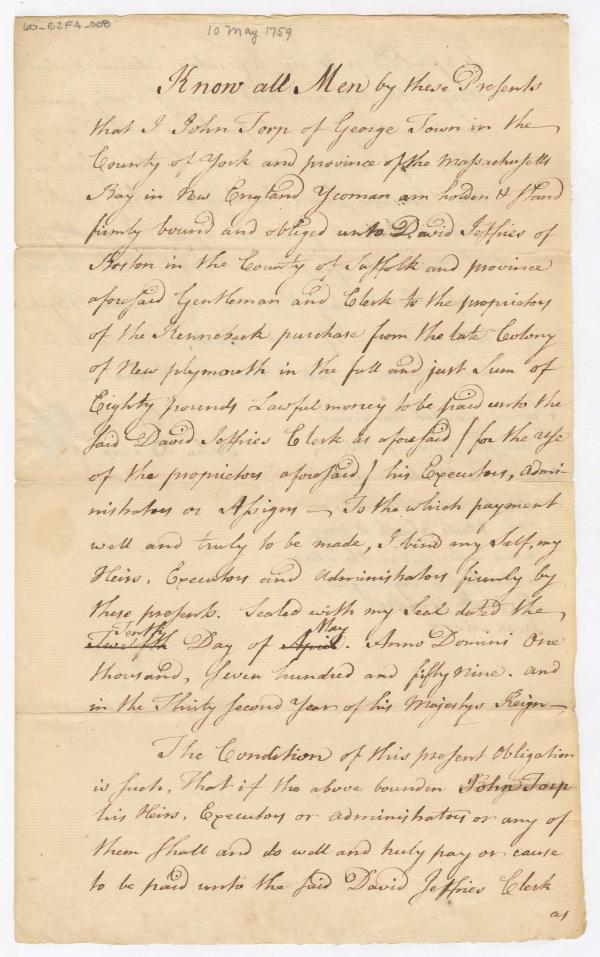 60-E2F4-008
10 May 1759
Know all Men by these Presents
that I John Torp of George Town in the
County of York and province of the Massachusetts
Bay in New England Yeoman am holden & stand
firmly bound and obliged unto David Jeffries of
Boston in the County of Suffolk and province
aforesaid Gentleman and Clerk to the proprietors
of the Kennebeck purchase from the late Colony
of New plymouth in the full and just Sum of
Eighty pounds Lawful money to be paid unto the
said David Jeffries Clerk as aforesaid / for the use
of the proprietors aforesaid / his Executors, Admi-
nistrators or Assigns — To the which payment
well and truly to be made, I bind my Self, my
Heirs, Executors and Administrators firmly by
these presents. Sealed with my Seal dated the
Tenth May
Twelfth Day of April. Anno Domini One
thousand, Seven hundred and fifty nine. and
in the Thirty second Year of his Majestys Reign —
The Condition of this present Obligation
is such, That if the above bounden John Torp
his Heirs, Executors or administrators or any of
them shall and do well and truly pay or cause
to be paid unto the said David Jeffries Clerk
as